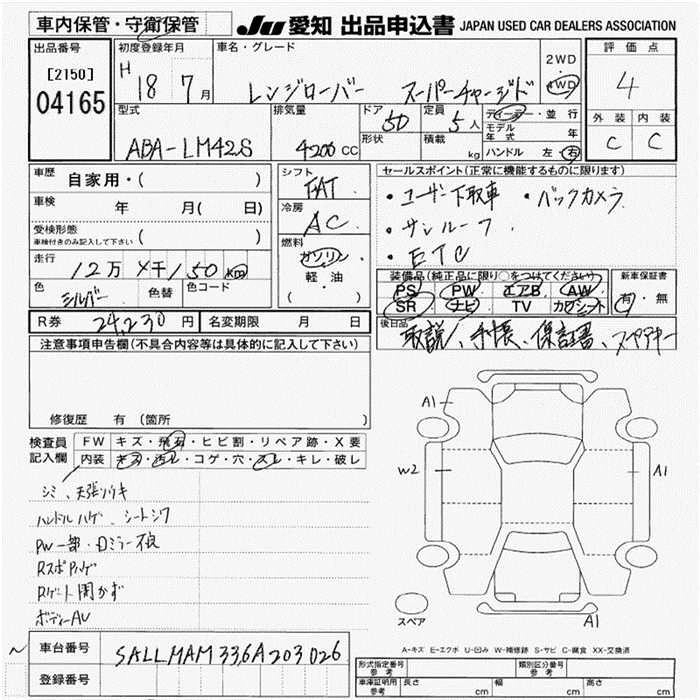 車内保管・守衛保管
JU 愛知 出品申込書 JAPAN USED CAR DEALERS ASSOCIATION
出品番号
[2150]
04165
初度登録年月
H 18 7 月
車名・グレード
レンジローバー スーパーチャージド
2WD
4WD
評価点
4
外装 内装
C C
型式
ABA-LM42S
排気量
4200 CC
ドア 5D
形状
定員 5 人
積載 kg
ディーラー・並行
モデル年式 年
ハンドル 左・右
車歴 自家用・( )
車検 年 月( 日)
受検形態
車検付きのみ記入して下さい ( )
走行 12万 4千150 km
色 シルバー 色替 色コード
シフト
FAT
冷房
AC
燃料
ガソリン
軽・油
( )
セールスポイント(正常に機能するものに限ります)
・ユーザー下取車 ・バックカメラ
・サンルーフ
・ETC
装備品(純正品に限り○をつけてください)
PS PW エアB AW
SR ナビ TV カワシート
新車保証書
有・無
R券 24,230 円 名変期限 月 日
後日品
取説、手帳、保証書、スペアキー
注意事項申告欄(不具合内容等は具体的に記入して下さい)
修復歴 有 (箇所 )
検査員記入欄
FW キズ・飛石・ヒビ割・リペア跡・X要
内装 キズ・汚レ・コゲ・穴・スレ・キレ・破レ
シミ、天張りウキ
ハンドルハゲ、シートシワ
PW一部・Dミラー不良
Rスポハゲ
Rゲート開かず
ボディーAU
A1
W2
A1
A1
スペア
A-キズ E-エクボ U-凹み W-補修跡 S-サビ C-腐食 XX-交換済
車台番号 SALLMAM336A203026
登録番号
形式指定番号 参考
類別区分番号 参考
車庫証明用 参考 長さ cm 幅 cm 高さ cm